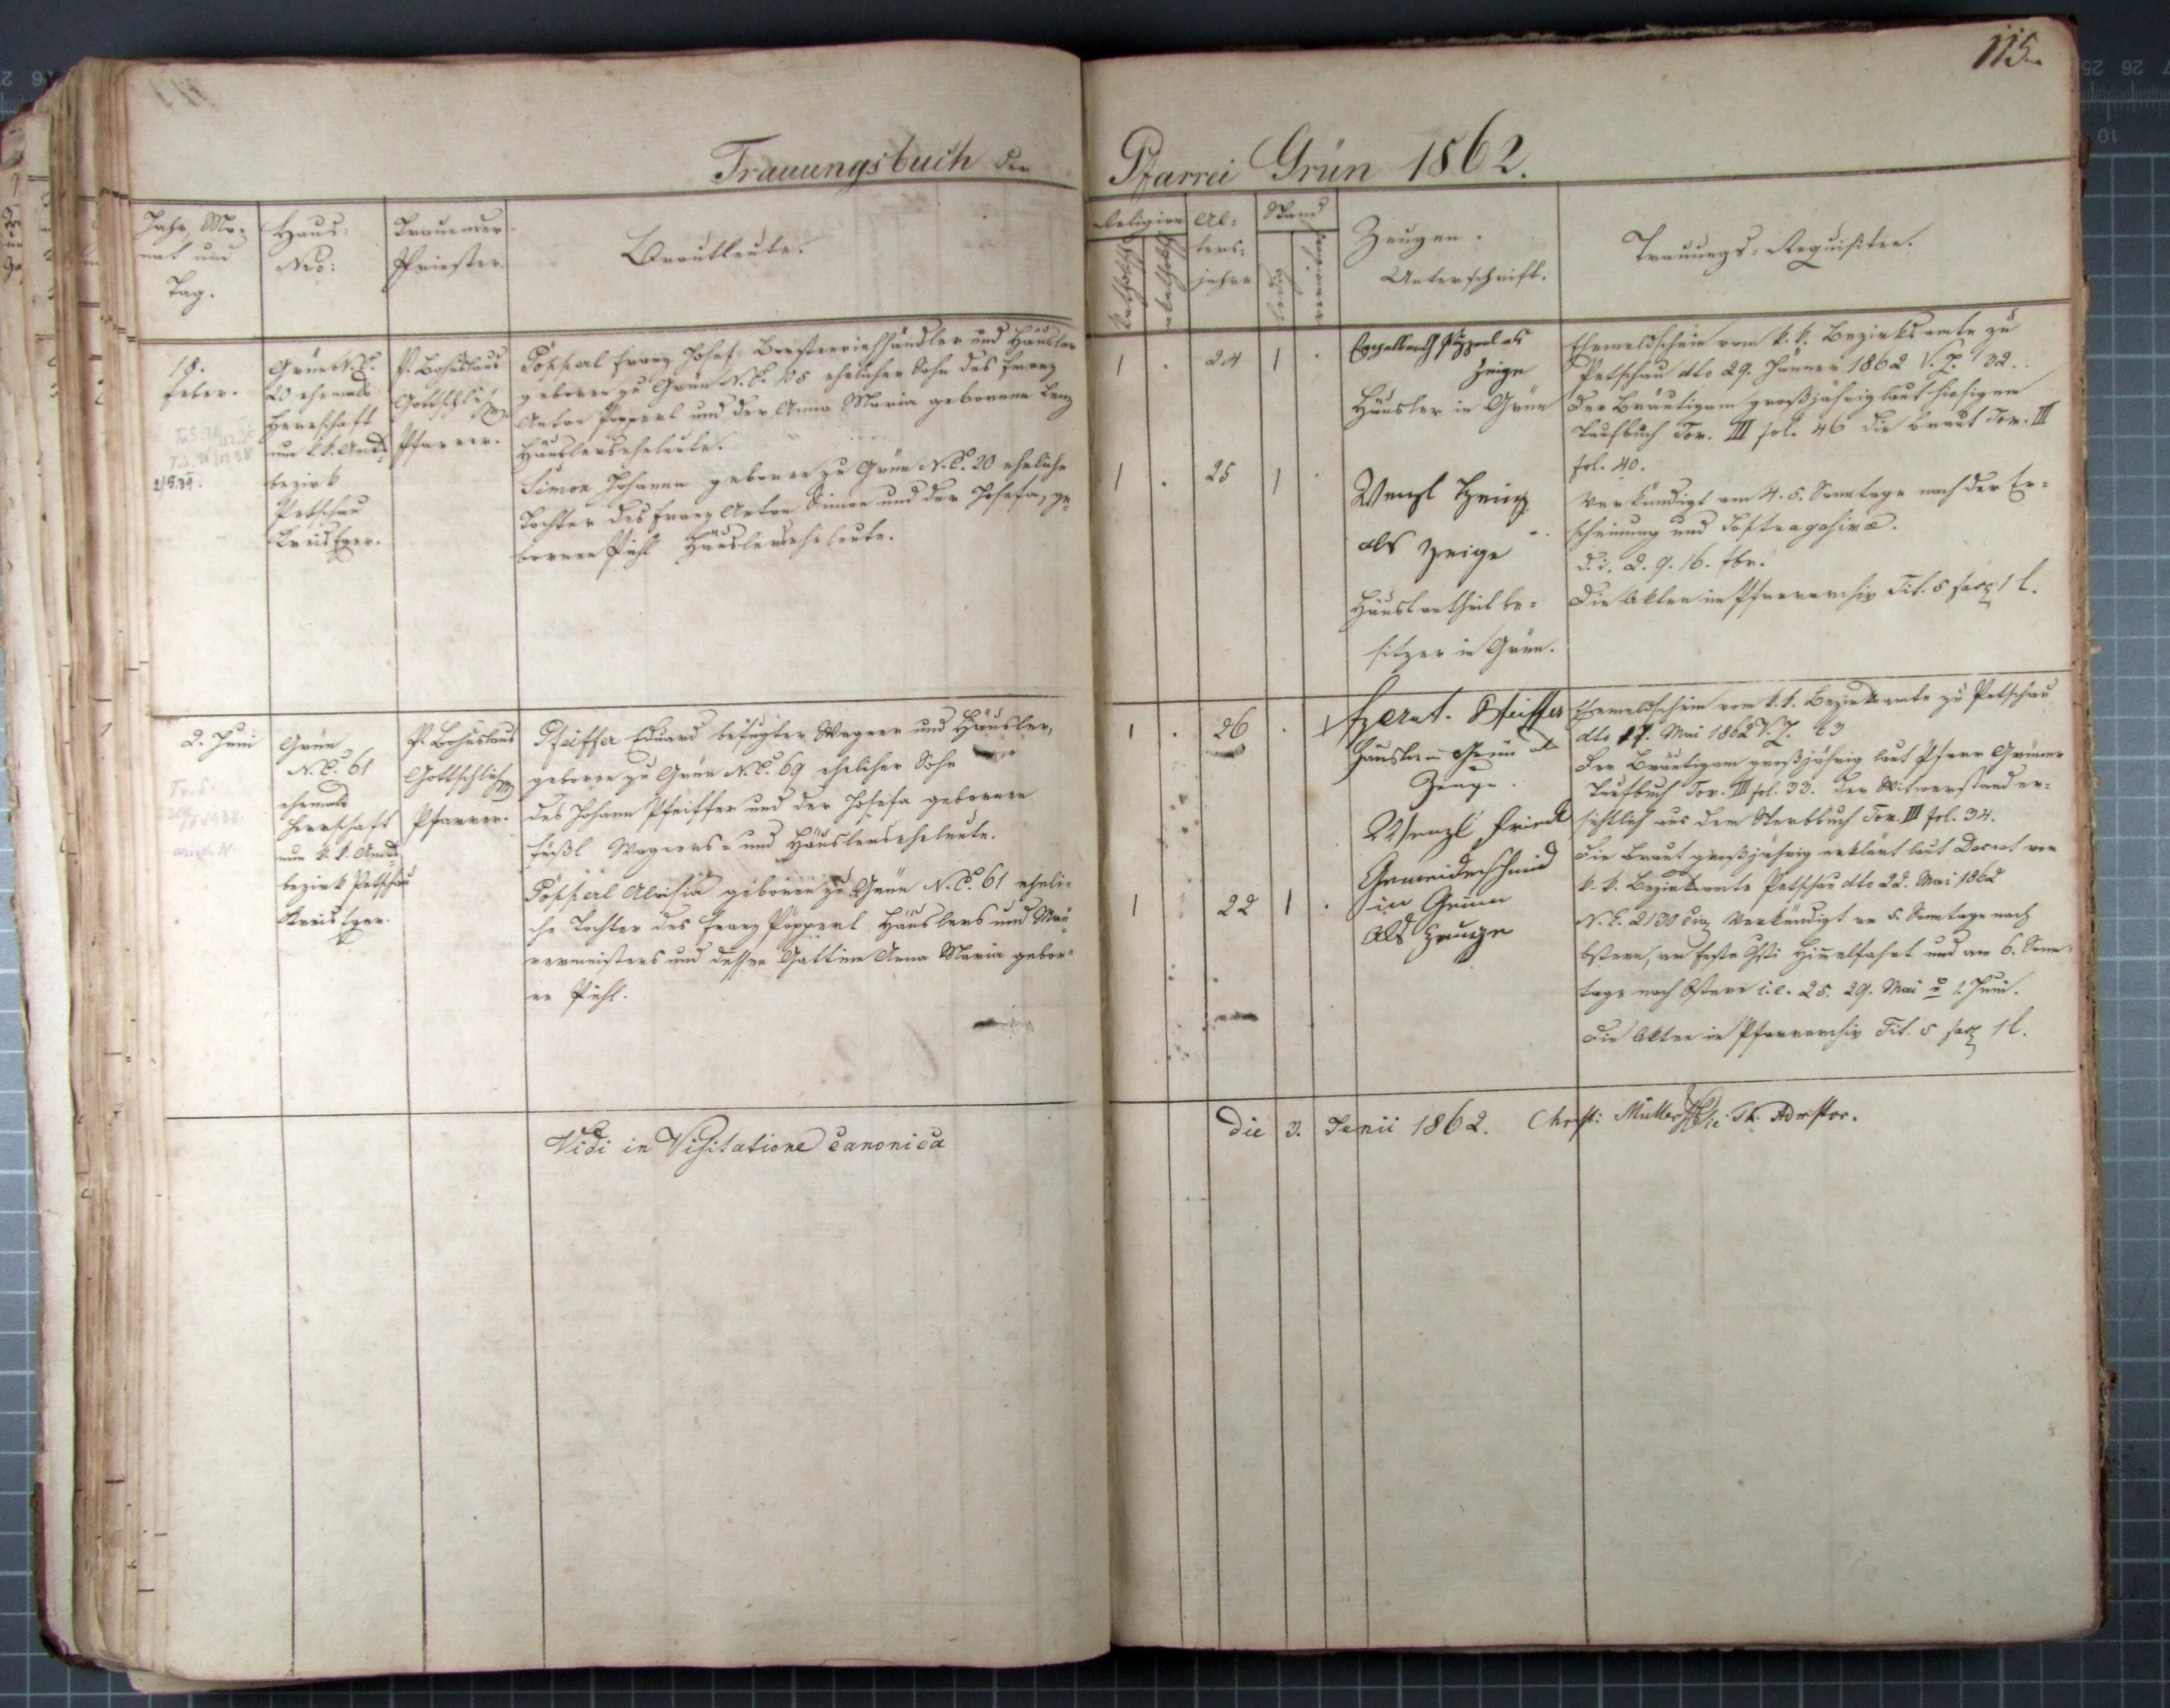 115.
Trauungsbuch der Pfarrei Grün 1862.
Jahr, Mo-
nat und
Tag.
Haus-
Nro:
Trauender
Priester.
Brautleute.
Religion
Katholisch
Al-
ters-
jahre
Stand
Zeugen.
Unterschrift.
Trauungs-Requisiten.
18.
Feber.
Grün N.C.
20 ehemals
Herrschaft
nun k.k. Amts-
bezirk
Petschau
Kreis Eger.
P. Bohuslaus
Gottschlich
Pfarrer.
Pöpperl Franz Josef, Borstenviehhändler und Häusler
geboren zu Grün N.C. 105 ehelicher Sohn des Franz
Anton Pöpperl und der Anna Maria gebornen Lenz
Häuslerseheleute.
Simon Johanna geboren zu Grün N.C. 20 eheliche
Tochter des Franz Anton Simon und der Josefa, ge-
bornen Pichl Häuslerseheleute.
1 . 24 1 .
1 . 25 1 .
Pöpperl als
Zeige
Häusler in Grün
Wenzl
als Zeige
Häuslantheilbe-
sitzer in Grün.
Ehemeldschein vom k.k. Bezirksamte zu
Petschau dto 29. Jänner 1862 V.Z. 32.
Der Bräutigam großjährig laut hiesigem
Taufbuch Tom. III fol. 46 die Braut Tom. III
fol. 40.
Verkündigt am 4. 5. Sonntage nach der Er-
scheinung und Septuagesima.
d.i. 2. 9. 16. Fbr.
Die Akten im Pfarrarchiv Tit. 5 fasz 1 l.
2. Juni
Grün
N.C. 61
ehemals
Herrschaft
nun k.k. Amts-
bezirk Petschau
Kreis Eger.
P. Bohuslaus
Gottschlich
Pfarrer.
Pfeiffer Eduard befugter Wagner und Häusler,
geboren zu Grün N.C. 69 ehelicher Sohn
des Johann Pfeiffer und der Josefa gebornen
Füßl Wagners- und Häuslerseheleute.
Pöpperl Aloisia geboren zu Grün N.C. 61 eheli-
che Tochter des Franz Pöpperl Häuslers und Mau-
rermeisters und dessen Gattin Anna Maria gebor-
ne Pichl.
1 . 26 . 1
1 22 1 .
Pfeiffer
Häusler in Grün als
Zeuge.
Wenzl
Gemeindeschmid
in Grünn
als Zeuge
Ehemeldschein vom k.k. Bezirksamte zu Petschau
dto 17. Mai 1862 V.Z. 43
Der Bräutigam großjährig laut Pfarr Grüner
Taufbuch Tom. III fol. 33. Der Witwerstand er-
sichtlich aus dem Sterbbuch Tom. III fol. 34.
Die Braut großjährig erklärt laut Decret vom
k.k. Bezirksamte Petschau dto 22. Mai 1862
N.E. 2130 Verkündigt am 5. Sonntage nach
Ostern, am Feste Christi Himmelfahrt und am 6. Sonn-
tage nach Ostern i.e. 25. 29. Mai u 1. Juni.
Die Akten im Pfarrarchiv Tit. 5 fasz 1 l.
Vidi in Visitatione canonica die 3. Junii 1862. Müller